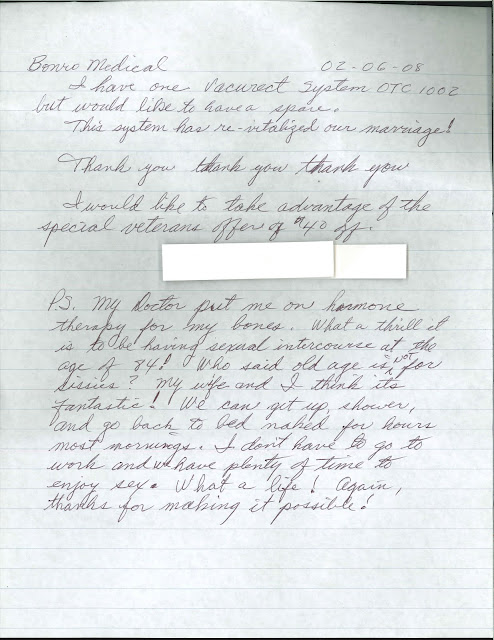 Bonro Medical 02-06-08
I have one Vacurect System OTC 1002
but would like to have a spare.
This system has re-vitalized our marriage!
Thank you thank you thank you
I would like to take advantage of the
special veterans offer of $40 off.
P.S. My Doctor put me on hormone
therapy for my bones. What a thrill it
is to be having sexual intercourse at the
age of 84! Who said old age is NOT for
sissies? My wife and I think its
fantastic! We can get up, shower,
and go back to bed naked for hours
most mornings. I don't have to go to
work and we have plenty of time to
enjoy sex. What a life! Again,
thanks for making it possible!